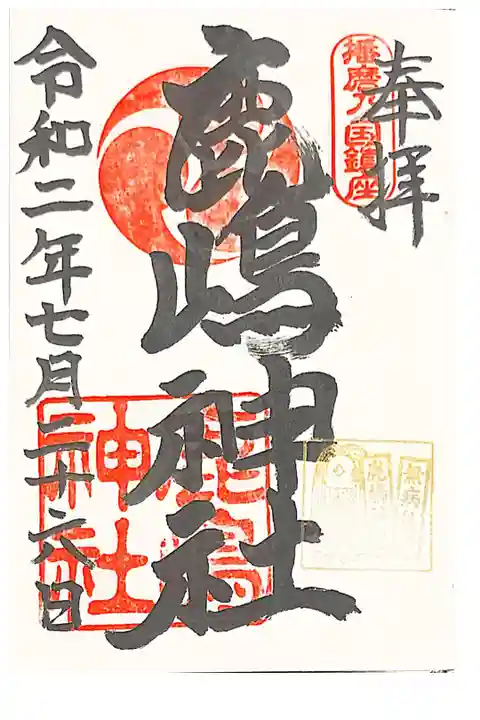 奉拝
播磨乃国鎮座
鹿嶋神社
鹿嶋神社
令和二年七月二十六日
無病